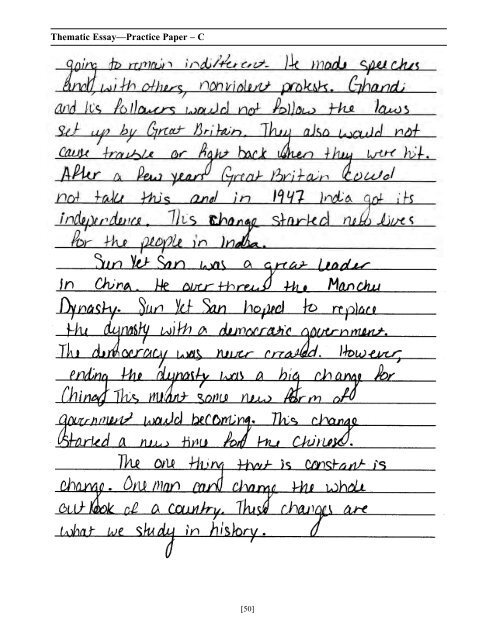 Thematic Essay—Practice Paper – C
going to remain indifferent. He made speeches
and, with others, nonviolent protests. Ghandi
and his followers would not follow the laws
set up by Great Britain. They also would not
cause trouble or fight back when they were hit.
After a few years Great Britain could
not take this and in 1947 India got its
independence. This change started new lives
for the people in India.
Sun Yet San was a great leader
in China. He overthrew the Manchu
Dynasty. Sun Yet San hoped to replace
the dynasty with a democratic government.
The democracy was never created. However,
ending the dynasty was a big change for
China. This meant some new form of
government would becoming. This change
started a new time for the Chinese.
The one thing that is constant is
change. One man can change the whole
outlook of a country. These changes are
what we study in history.
[50]